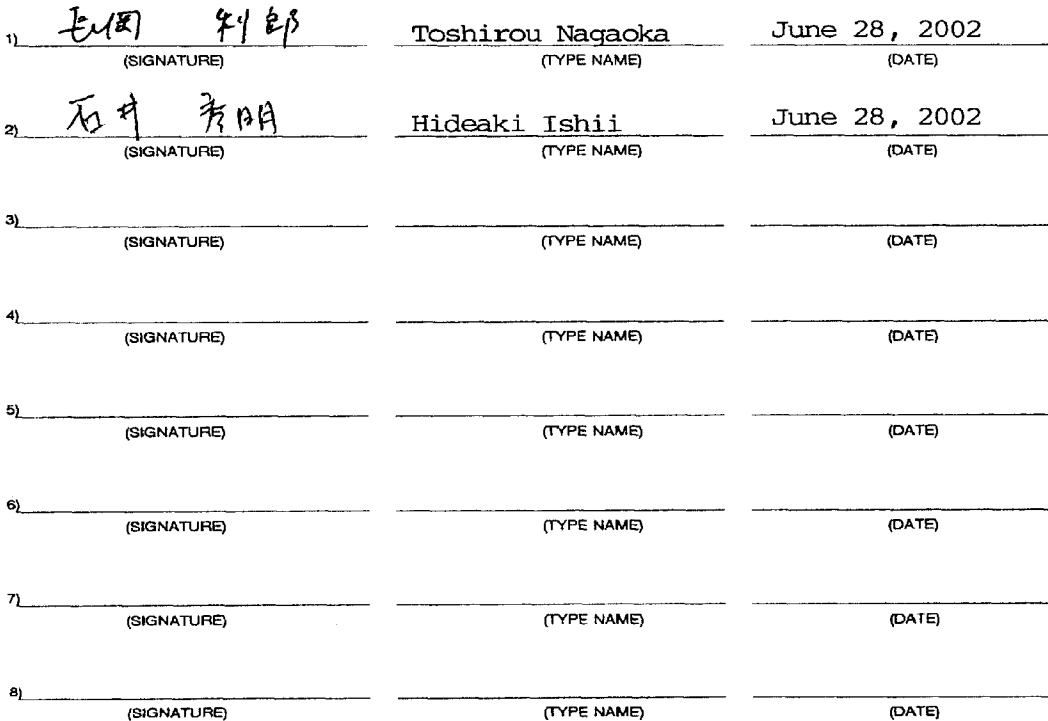 1) 長岡 利郎 Toshirou Nagaoka June 28, 2002
(SIGNATURE) (TYPE NAME) (DATE)
2) 石井 秀明 Hideaki Ishii June 28, 2002
(SIGNATURE) (TYPE NAME) (DATE)
3)
(SIGNATURE) (TYPE NAME) (DATE)
4)
(SIGNATURE) (TYPE NAME) (DATE)
5)
(SIGNATURE) (TYPE NAME) (DATE)
6)
(SIGNATURE) (TYPE NAME) (DATE)
7)
(SIGNATURE) (TYPE NAME) (DATE)
8)
(SIGNATURE) (TYPE NAME) (DATE)